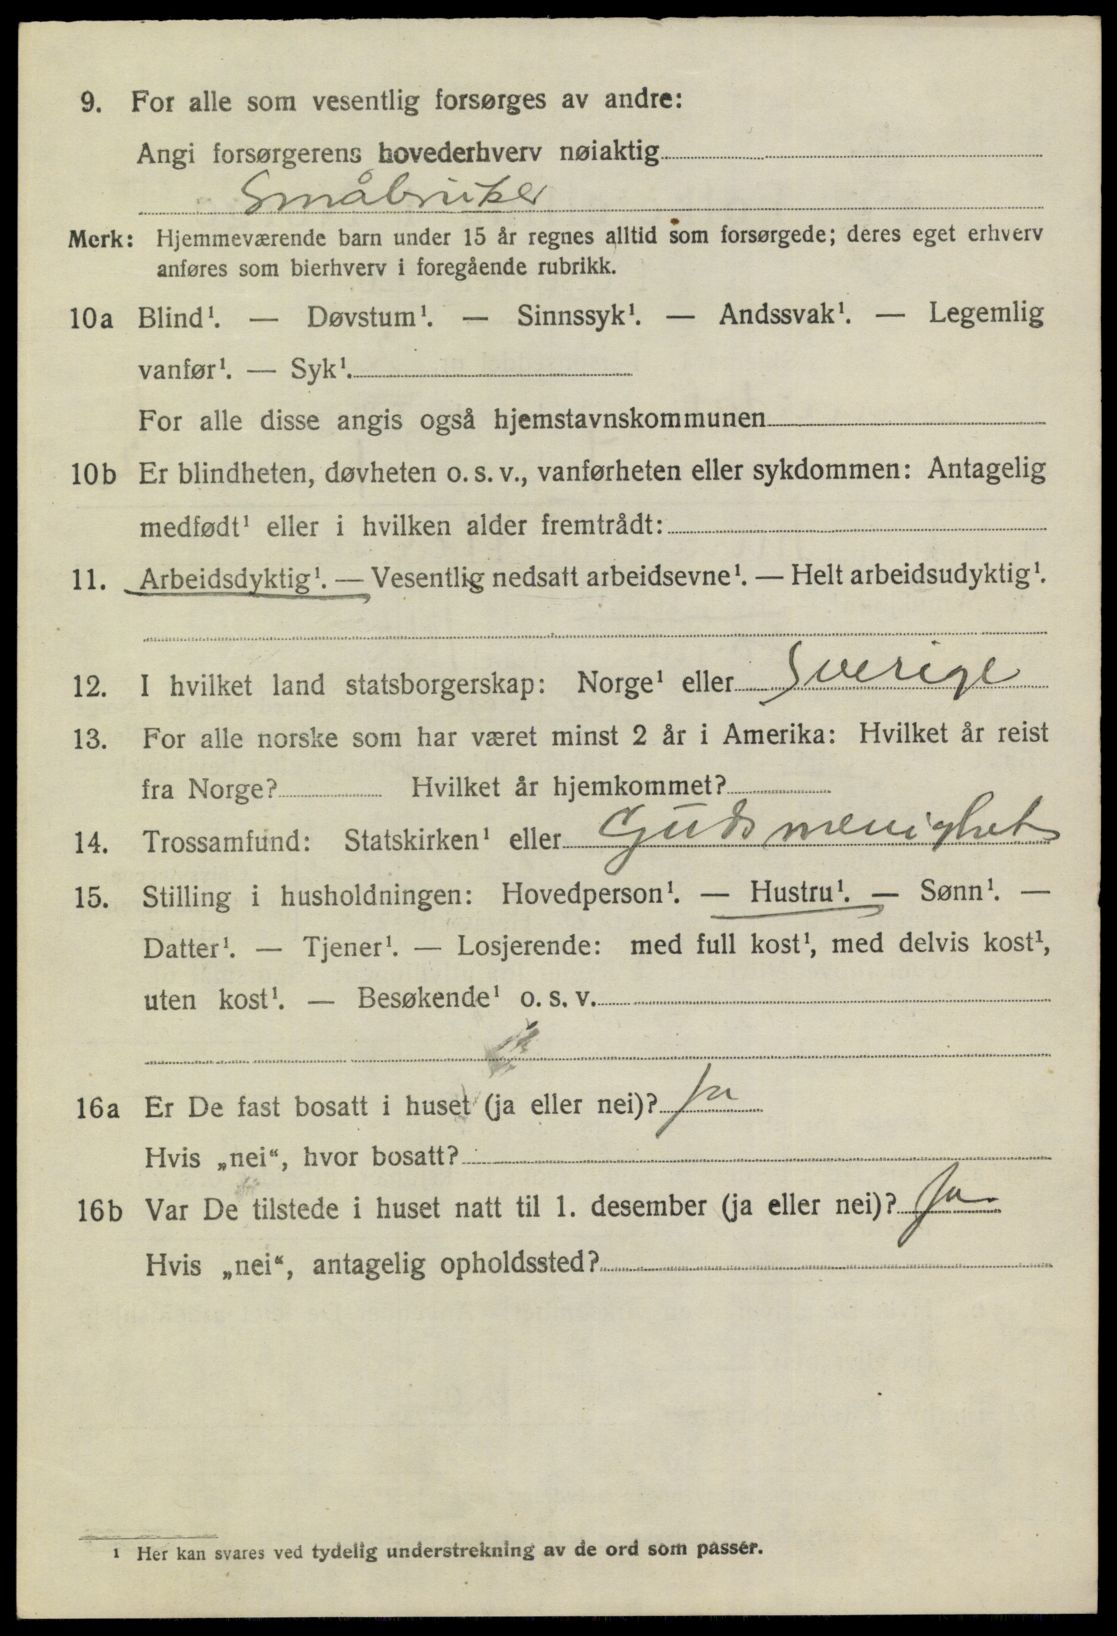 9. For alle som vesentlig forsørges av andre:
Angi forsørgerens hovederhverv nøiaktig
Småbruker
Merk: Hjemmeværende barn under 15 år regnes alltid som forsørgede; deres eget erhverv
anføres som bierhverv i foregående rubrikk.
10a Blind¹. — Døvstum¹. — Sinnssyk¹. — Andssvak¹. — Legemlig
vanfør¹. — Syk¹.
For alle disse angis også hjemstavnskommunen
10b Er blindheten, døvheten o. s. v., vanførheten eller sykdommen: Antagelig
medfødt¹ eller i hvilken alder fremtrådt:
11. Arbeidsdyktig¹. — Vesentlig nedsatt arbeidsevne¹. — Helt arbeidsudyktig¹.
12. I hvilket land statsborgerskap: Norge¹ eller Sverige
13. For alle norske som har været minst 2 år i Amerika: Hvilket år reist
fra Norge? Hvilket år hjemkommet?
14. Trossamfund: Statskirken¹ eller Guds menighet
15. Stilling i husholdningen: Hovedperson¹. — Hustru¹. — Sønn¹. —
Datter¹. — Tjener¹. — Losjerende: med full kost¹, med delvis kost¹,
uten kost¹. — Besøkende¹ o. s. v.
16a Er De fast bosatt i huset (ja eller nei)? Ja
Hvis „nei“, hvor bosatt?
16b Var De tilstede i huset natt til 1. desember (ja eller nei)? Ja
Hvis „nei“, antagelig opholdssted?
¹ Her kan svares ved tydelig understrekning av de ord som passer.